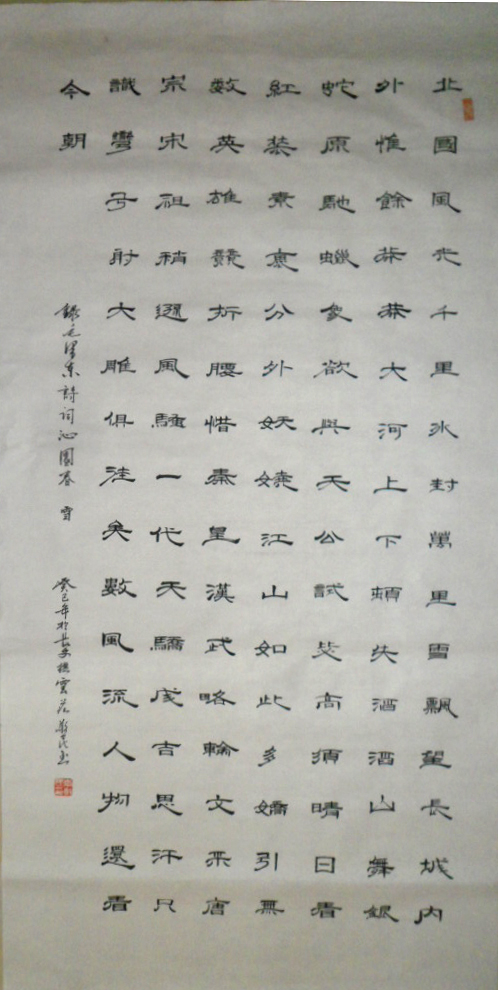 北國風光千里冰封萬里雪飄望長城內
外惟餘莽莽大河上下頓失滔滔山舞銀
蛇原馳蠟象欲與天公試比高須晴日看
紅裝素裹分外妖嬈江山如此多嬌引無
數英雄競折腰惜秦皇漢武略輸文采唐
宗宋祖稍遜風騷一代天驕成吉思汗只
識彎弓射大雕俱往矣數風流人物還看
今朝
錄毛澤東詩詞沁園春 雪
癸巳年於長安